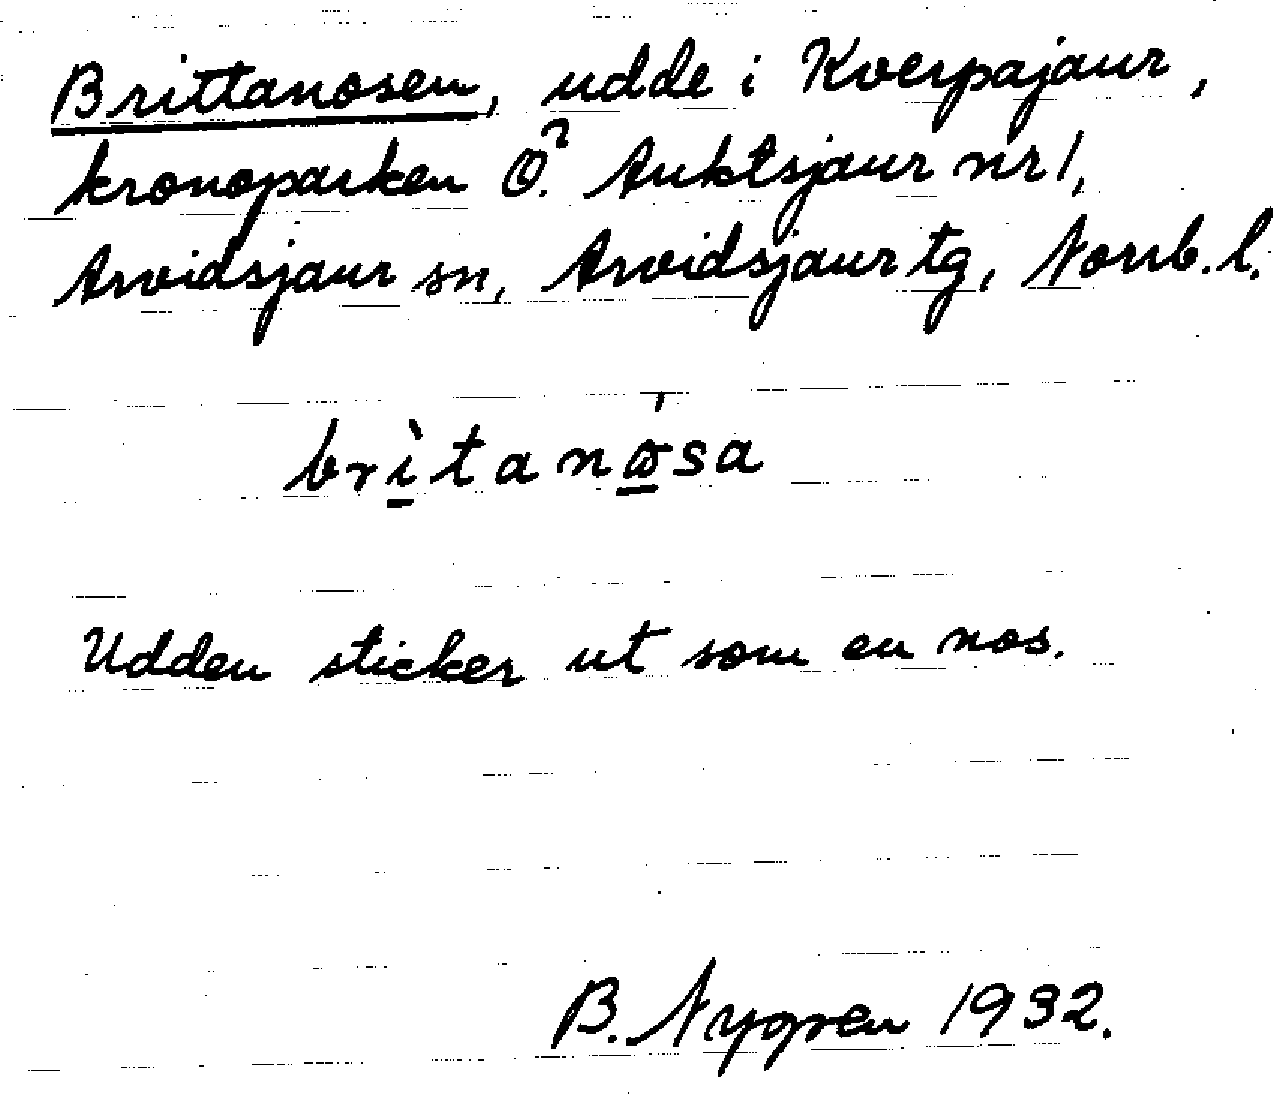 Brittanosen, udde i Kverpajaur,
kronoparken Ö.? Auktsjaur nr 1,
Arvidsjaur sn, Arvidsjaur tg, Norrb. l.
britanåsa
Udden sticker ut som en nos.
B. Nygren 1932.